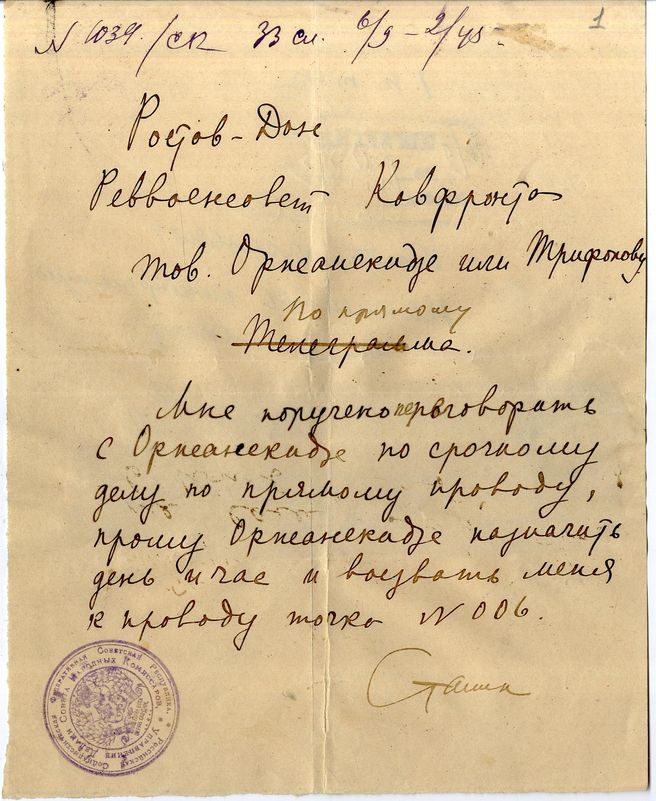 1
N 1039./ск 33 сл. 6/9 - 2/45.
Ростов-Дон
Реввоенсовет Кавфронта
тов. Оржаникидзе или Трифонову
По прямому
Телеграмма.
Мне поручено переговорить
с Оржаникидзе по срочному
делу по прямому проводу,
прошу Оржаникидзе назначить
день и час и вызвать меня
к проводу точка N 006.
Сталин
Российская Социалистическая Федеративная Советская Республика
Управление Делами Совета Народных Комиссаров